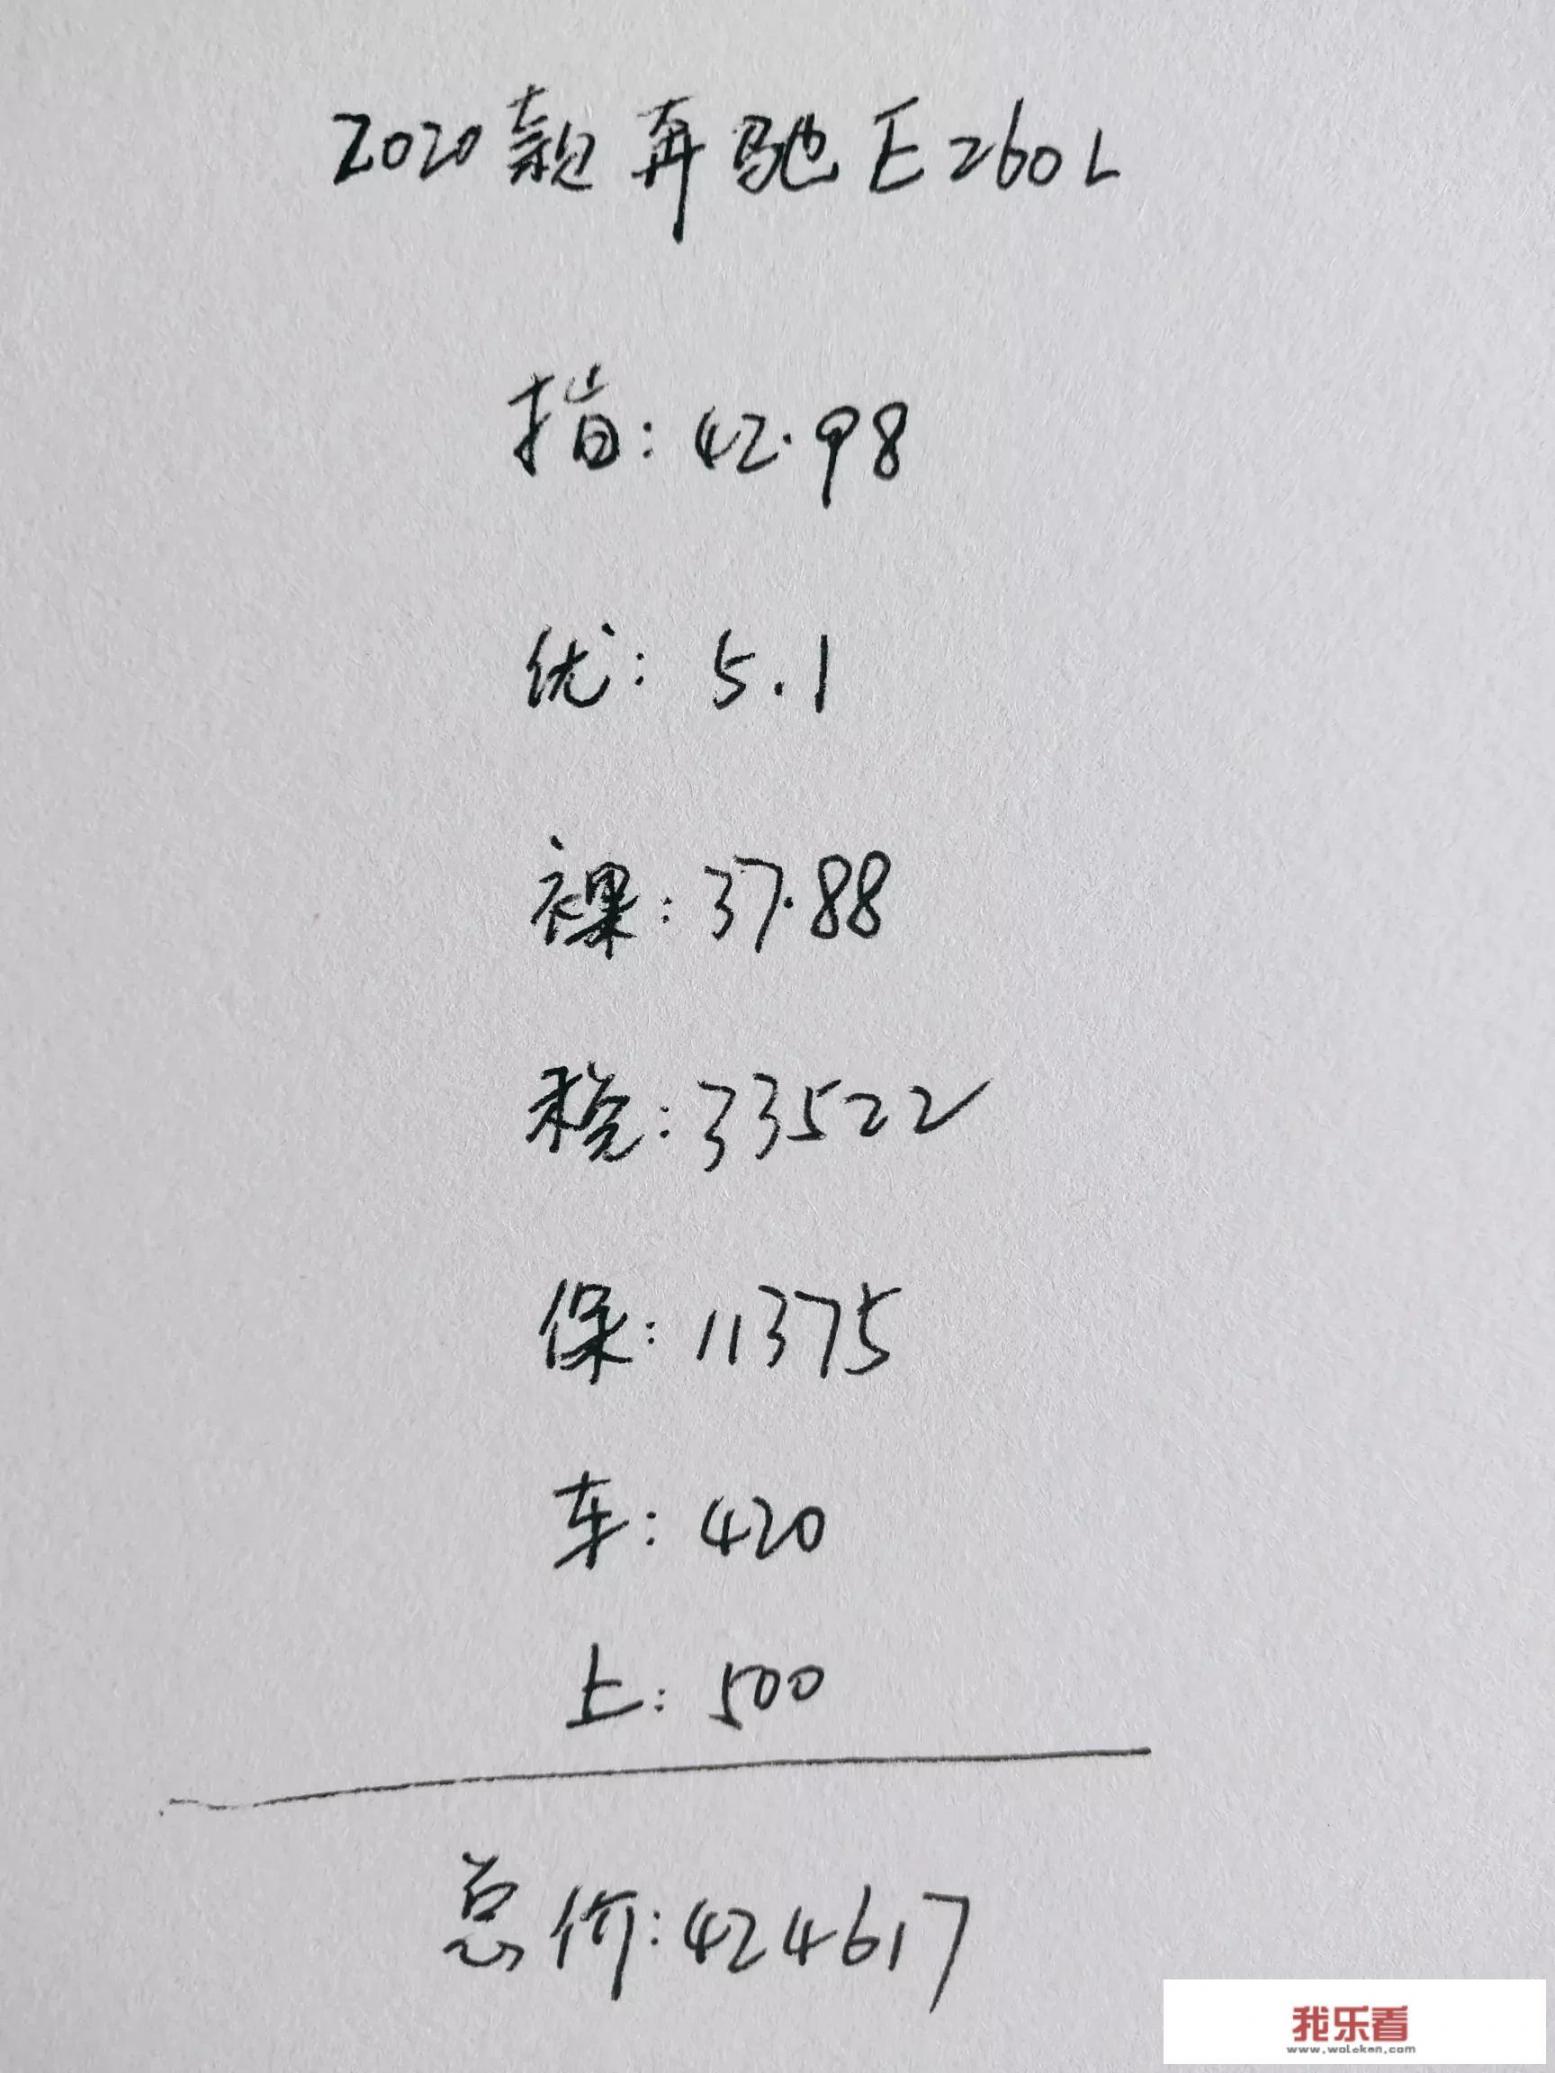 2020款奔驰E260L
指:42.98
优:5.1
裸:37.88
税:33522
保:11375
车:420
上:500
总价:424617
我乐看
www.woleken.com